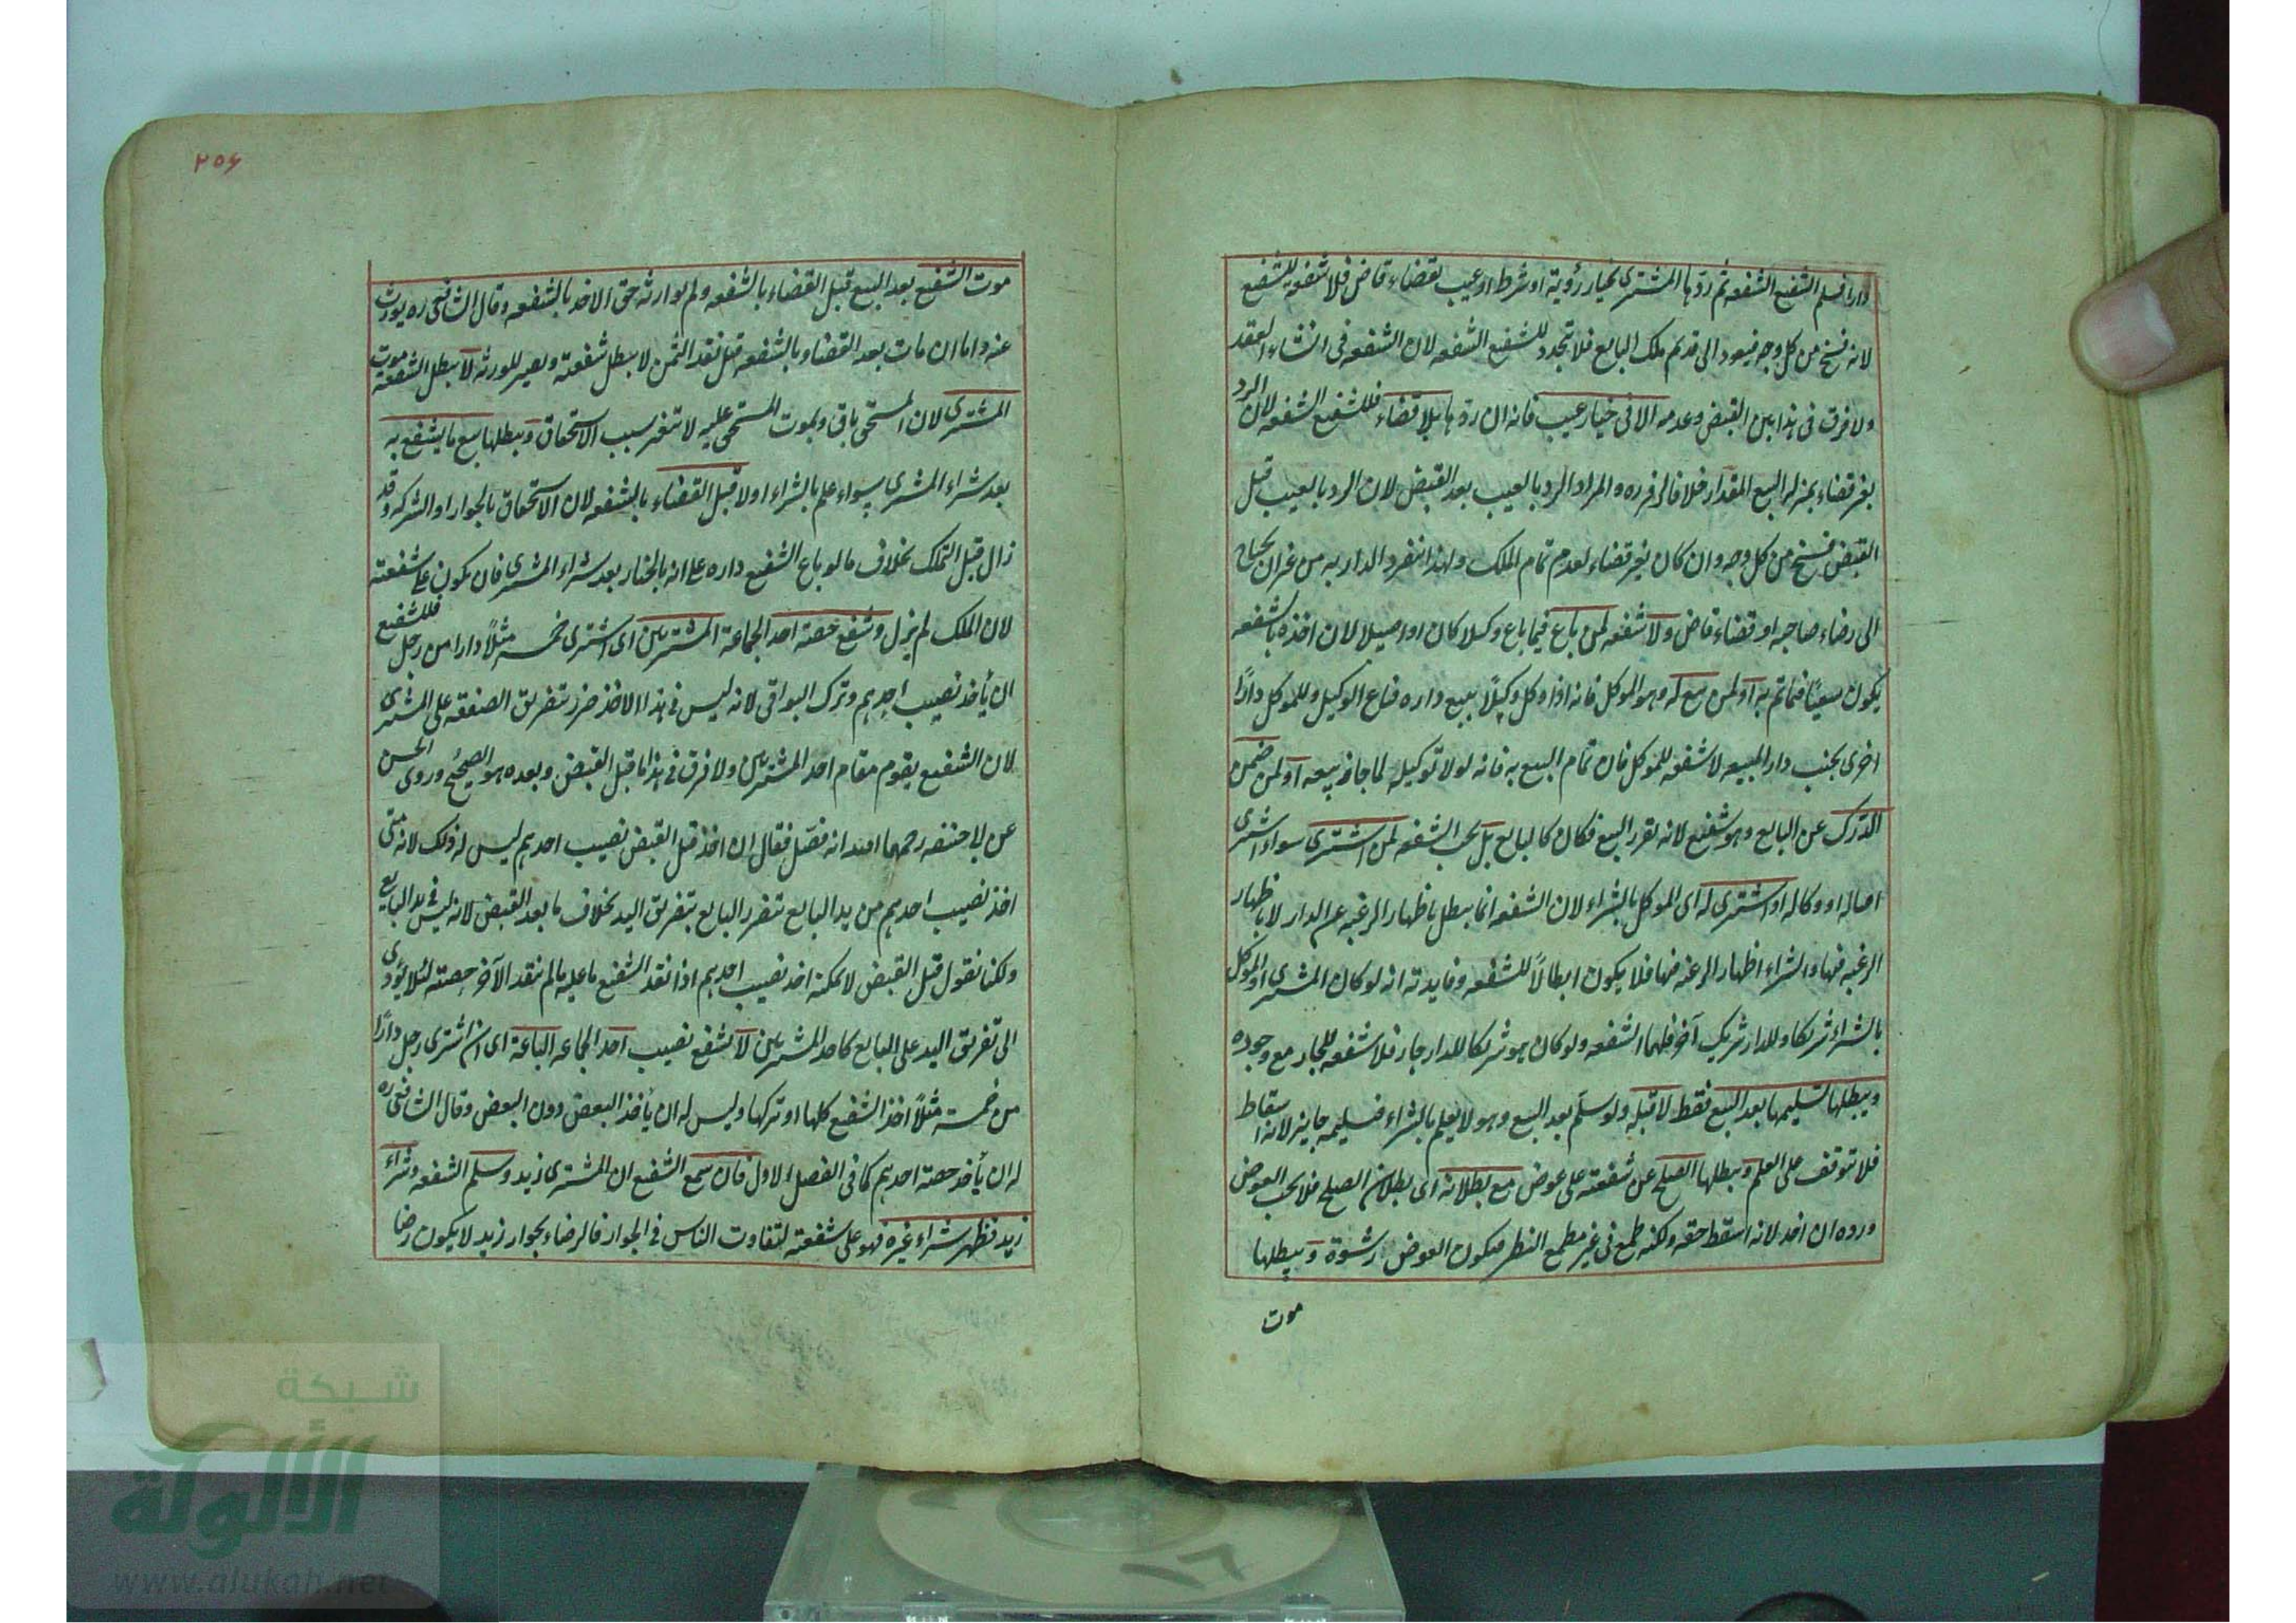 دارا فسلم الشفيع الشفعه ثم ردها المشترى بخيار رؤية او شرط او عيب بقضاء قاض فلا شفعه للشفيع
لانه فسخ من كل وجه فيعود الى قديم ملك البايع فلا تتجدد للشفيع الشفعه لان الشفعه فى انشاء العقد
ولا فرق فى هذا بين القبض وعدمه الا فى خيار عيب فانه ان ردها بلا قضاء فللشفيع الشفعه لان الرد
بغير قضاء بمنزله البيع المقدار خلافا لزفر ره والمراد الرد بالعيب بعد القبض لان الرد بالعيب قبل
القبض فسخ من كل وجه وان كان بغير قضاء لعدم تمام الملك ولهذا انفرد الدار به من غير ان يحتاج
الى رضاء صاحبه او قضاء قاض ولا شفعه لمن باع فيما باع وكيلا كان او اصيلا لان اخذه بالشفعه
يكون سعيًا فيما تم به او لمن بيع له وهو الموكل فانه اذا وكل وكيلًا ببيع داره فباع الوكيل وللموكل دارًا
اخرى بجنب دار المبيعه لا شفعه للموكل فان تمام البيع به فانه لولا توكيله لما جاز بيعه او لمن ضمن
الدرك عن البايع وهو شفيع لانه تقرر البيع فكان كالبايع بل يجب الشفعه لمن اشترى سواء اشترى
اصاله او وكاله او اشترى له اى الموكل بالشراء لان الشفعه انما يبطل باظهار الرغبه عن الدار لا باظهار
الرغبه فيها والشراء اظهار الرغبه فيها فلا يكون ابطالًا للشفعه وفايدته انه لو كان المشترى او الموكل
بالشراء شريكا وللدار شريك آخر فلهما الشفعه ولو كان هو شريكا للدار جار فلا شفعه للجار مع وجوده
ويبطلها تسليمها بعد البيع فقط لا قبله ولو سلم بعد البيع وهو لا يعلم بالشراء فتسليمه جايز لانه اسقاط
فلا تتوقف على العلم ويبطلها الصلح عن شفعته على عوض مع بطلانه اى بطلان الصلح فلا يجب العوض
ورده ان اخذ لانه اسقط حقه ولكنه طمع فى غير مطمع النظر فيكون العوض رشوة ويبطلها
موت
٢٥٦
موت الشفيع بعد البيع قبل القضاء بالشفعه ولم يوارثه حق الاخذ بالشفعه وقال الشافعى ره يورث
عنه واما ان مات بعد القضاء بالشفعه قبل نقد الثمن لا يبطل شفعته ويصير للورثه لا يبطل الشفعه موت
المشترى لان المستحق باق وبموت المستحق عليه لا تتغير سبب الاستحقاق ويبطلها بيع ما يشفع به
بعد شراء المشترى سواء علم بالشراء او لا قبل القضاء بالشفعه لان الاستحقاق بالجوار او الشركه وقد
زال قبل التملك بخلاف ما لو باع الشفيع داره على انه بالخيار بعد شراء المشترى فان يكون على شفعته
لان الملك لم يزل وشفع حصة احد الجماعة المشتريين اى اشترى خمسه مثلًا دارا من رجل فللشفيع
ان يأخذ نصيب احدهم وترك البواقى لانه ليس فى هذا الاخذ ضرر بتفريق الصفقه على المشترى
لان الشفيع يقوم مقام احد المشتريين ولا فرق فى هذا ما قبل القبض وبعده هو الصحيح وروى الحسن
عن ابى حنيفه رحمهما الله انه فصّل فقال ان اخذ قبل القبض نصيب احدهم ليس له ذلك لانه متى
اخذ نصيب احدهم من يد البايع تتضرر البايع بتفريق اليد بخلاف ما بعد القبض لانه ليس فى يد البايع
ولكنا نقول قبل القبض لا يمكنه اخذ نصيب احدهم اذا نقد الشفيع ما عليه ما لم ينقد الآخر حصته لئلا يؤدى
الى تفريق اليد على البايع كاحد المشتريين لا تشفع نصيب احد الجماعه الباعة اى ان اشترى رجل دارًا
من خمسة مثلًا اخذ الشفيع كلها او تركها وليس له ان يأخذ البعض دون البعض وقال الشافعى ره
له ان يأخذ حصة احدهم كما فى الفصل الاول فان سمع الشفيع ان المشترى زيد وسلم الشفعه وشراء
زيد فظهر شراء غيره فهو على شفعته لتفاوت الناس فى الجوار فالرضاء بجوار زيد لا يكون رضا
شبكة
الألوكة
www.alukah.net